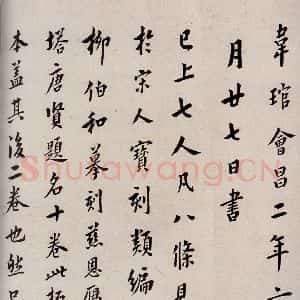 韋琯會昌二年六
月廿七日書
已上七人凡八條見
於宋人寶刻類編
柳伯和摹刻慈恩雁
塔唐賢題名十卷此拓
本蓋其後二卷也然已
Shufawang.CN